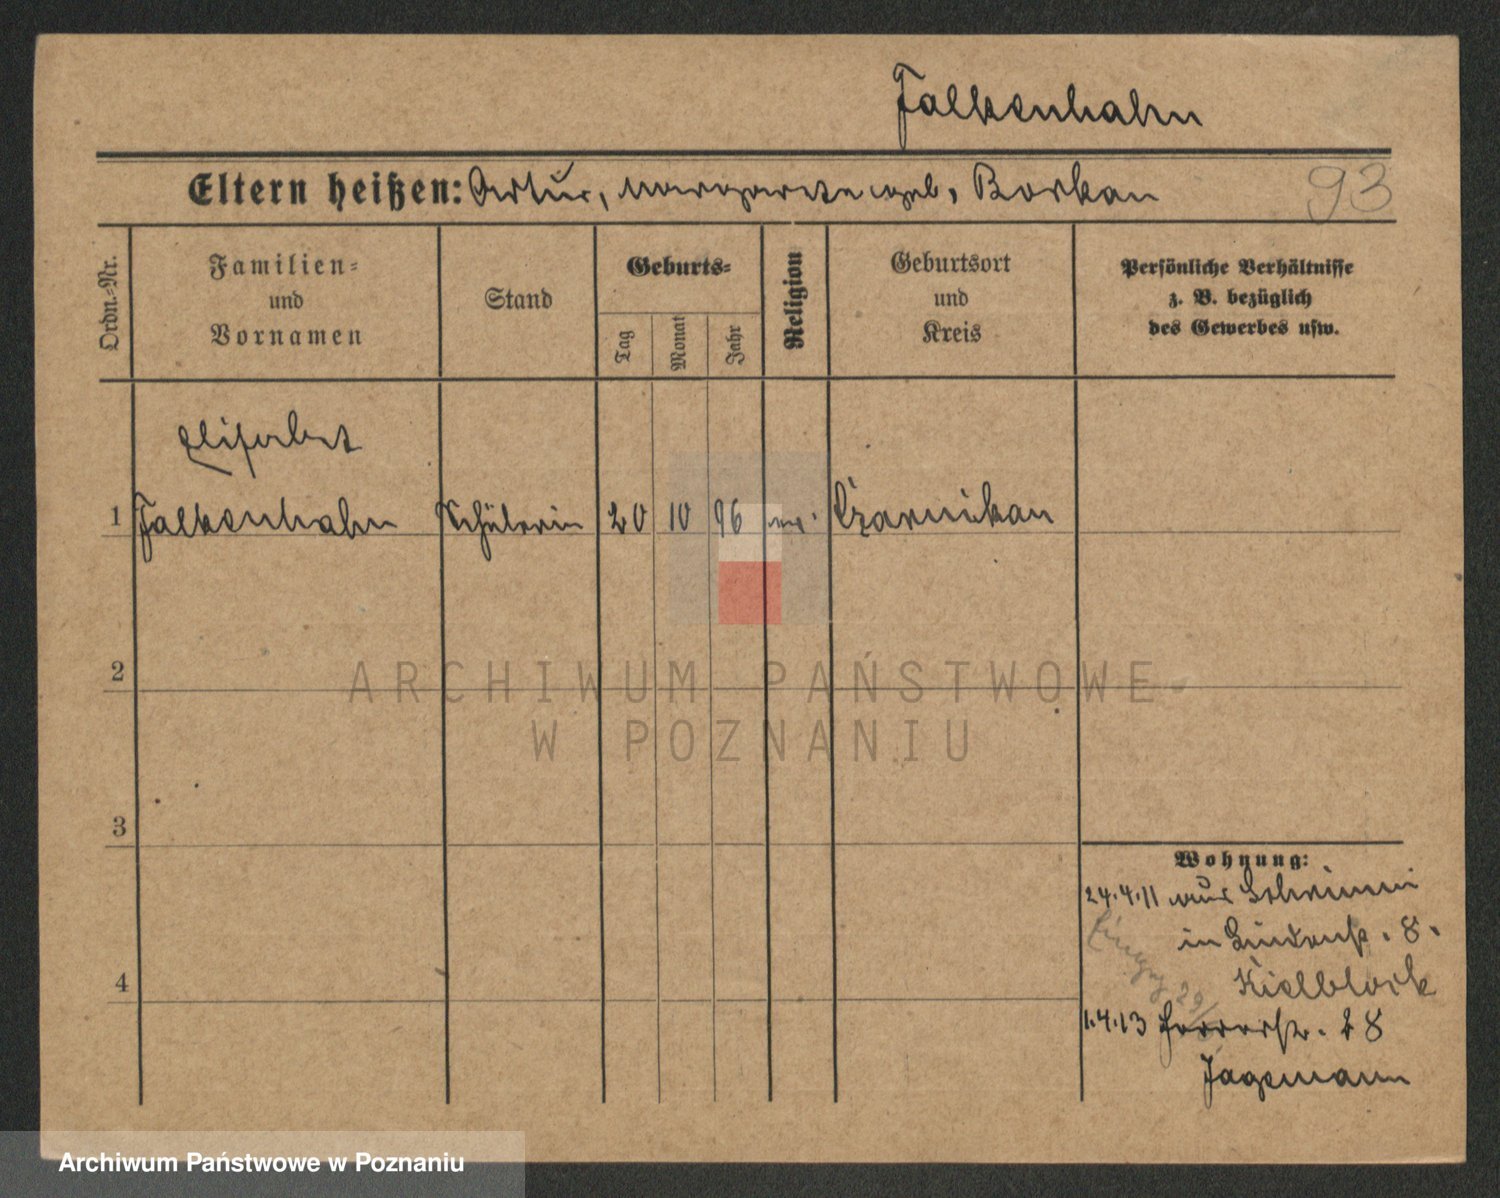 Falkenhahn
Eltern heißen: Artur, Margarete geb. Borkan
93
Ordn.-Nr.
Familien-
und
Vornamen
Stand
Geburts-
Tag
Monat
Jahr
Religion
Geburtsort
und
Kreis
Persönliche Verhältnisse
z. B. bezüglich
des Gewerbes usw.
Elisabet
1 Falkenhahn Schülerin 20 10 96 ev. Czarnikau
2
ARCHIWUM PAŃSTWOWE
W POZNANIU
3
Wohnung:
24.4.11 aus
in 8.
4
Kielblock
29
1.4.13 28
Jagemann
Archiwum Państwowe w Poznaniu